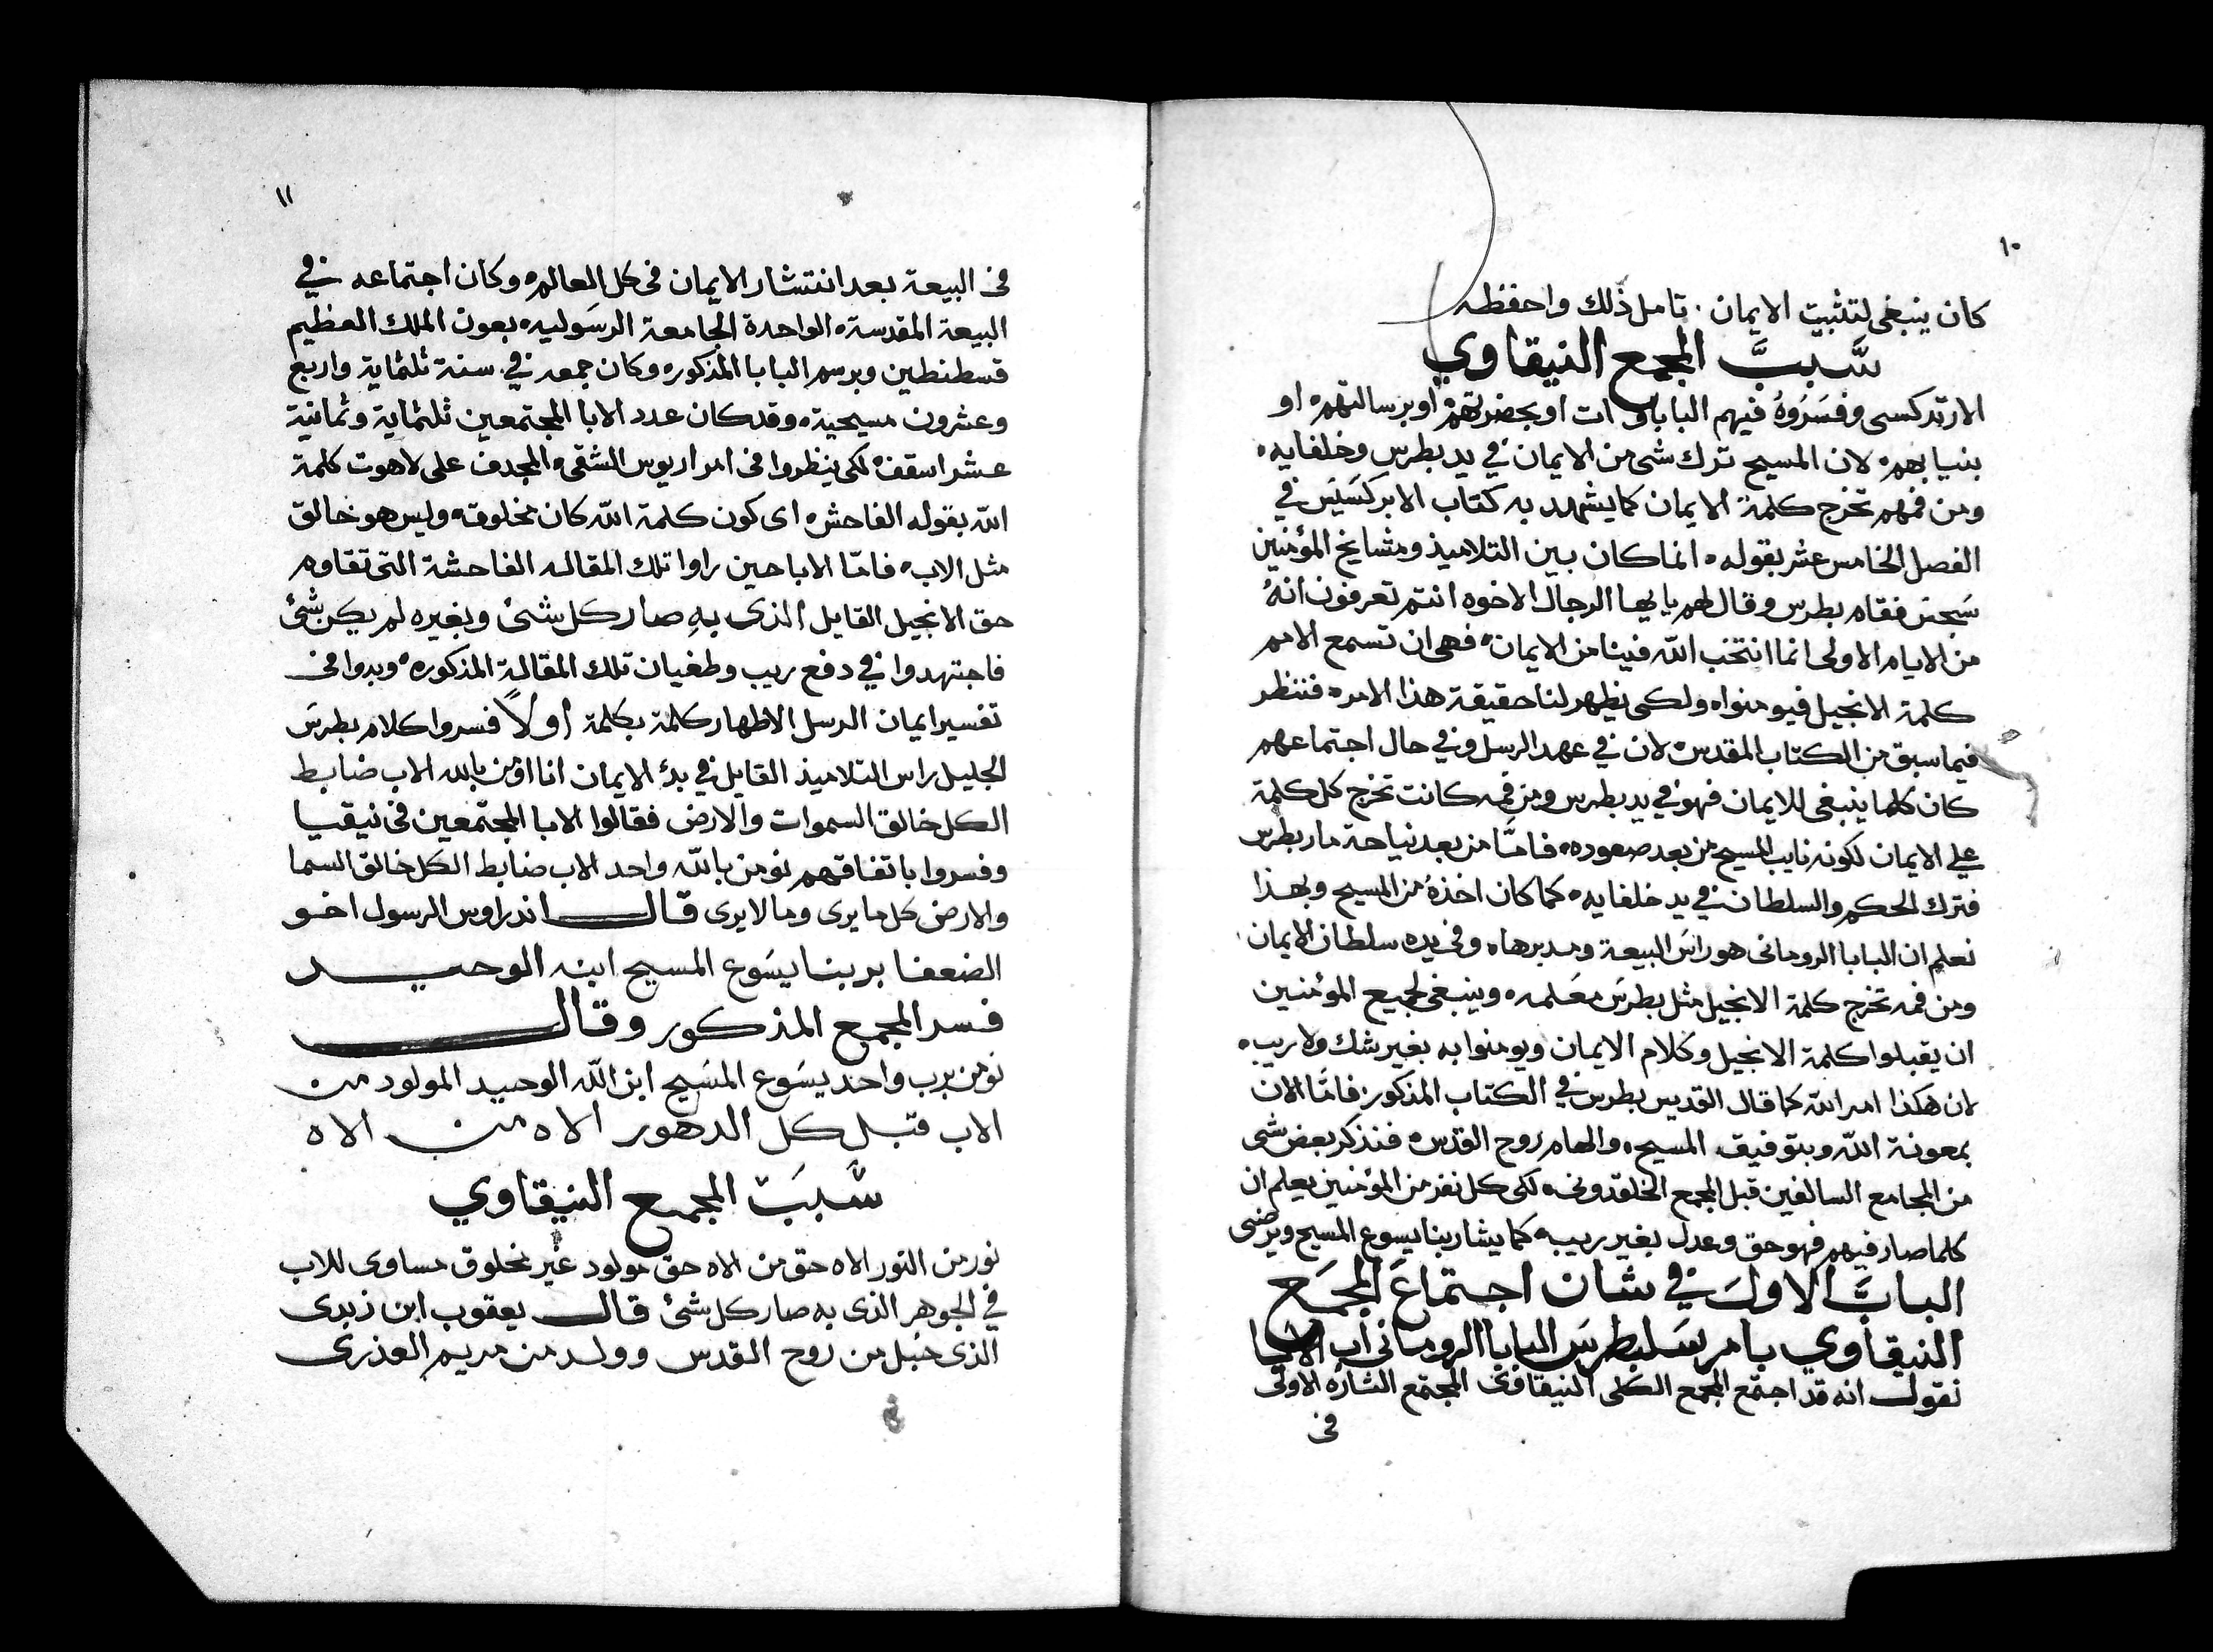 ١٠
كان ينبغى لتثبيت الايمان . تامل ذلك واحفظه
سَبب المجمع النيقاوي
الارتدكسى وفسَروهُ فيهم الباباوات او بحضرتهم او برسالتهم او
بنيابهم لان المسيح ترك شى من الايمان في يد بطرس وخلفايه
ومن فمهم تخرج كلمة الايمان كما يشهد به كتاب الابركسَيسَ في
الفصل الخامس عشر بقوله انما كان بين التلاميذ ومشايخ المؤمنين
سَجس فقام بطرس وقال لهم يايها الرجال الاخوه انتم تعرفون انهُ
من الايام الاولى انما انتخب الله فينا من الايمان فهى ان تسمع الامم
كلمة الانجيل فيومنواه ولكى يظهر لنا حقيقة هذا الامر فننظر
فيما سبق من الكتاب المقدس لان في عهد الرسل وفي حال اجتماعهم
كان كلما ينبغى للايمان فهو في يد بطرس ومن فمه كانت تخرج كل كلمة
على الايمان لكونه نايب المسيح من بعد صعوده فامّا من بعد نياحة مار بطرس
فترك الحكم والسلطان في يد خلفايه كما كان اخذهُ من المسيح وبهذا
نعلم ان البابا الرومانى هو راسَ البيعة ومدبرهاه وفى يده سلطان الايمان
ومن فمه تخرج كلمة الانجيل مثل بطرسَ معَلمه وينبغى لجميع المؤمنين
ان يقبلوا كلمة الانجيل وكلام الايمان ويومنوا به بغير شك ولا ريب
لان هكذا امر الله كما قال القديس بطرس في الكتاب المذكور فامّا الان
بمعونة الله وبتوفيق المسيح والهام روح القدس فنذكر بعض شى
من المجامع السالفين قبل المجمع الخلقدونى لكى كل نفر من المؤمنين يعلم ان
كلما صار فيهم فهو حق وعدل بغير ريب كما يشا ربنا يسوع المسيح ويرضى
البابَ الاولَ في شان اجتماعَ المجمَع
النيقاوي بامر سَلبطرسَ البابا الرومانى اب الابا
نقول انه قد اجتمع المجمع الكلى النيقاوى المجتمع الشاره الاولى
فى
١١
فى البيعة بعد انتشار الايمان فى كل العالم وكان اجتماعه في
البيعة المقدسة الواحدة الجامعة الرسَوليه بعون الملك العظيم
قسطنطين وبرسم البابا المذكوره وكان جمعه في سنة ثلثماية واربع
وعشرون مسيحية وقد كان عدد الابا المجتمعين ثلثماية وثمانية
عشر اسقف لكى ينظروا فى امر اريوس الشقى المجدف على لاهوت كلمة
الله بقوله الفاحش اى كون كلمة الله كان مخلوقه وليس هو خالق
مثل الاب فامّا الابا حين راوا تلك المقاله الفاحشة التى تقاوم
حق الانجيل القايل الذى بهِ صار كل شئ وبغيره لم يكن شئ
فاجتهدوا في دفع ريب وطغيان تلك المقالة المذكوره وبدوا فى
تفسير ايمان الرسل الاطهار كلمة بكلمة اولاً فسروا كلام بطرسَ
الجليل راس التلاميذ القايل في بدء الايمان انا اؤمن بالله الاب ضابط
الكل خالق السموات والارض فقالوا الابا المجتمعين فى نيقيا
وفسروا باتفاقهم نومن بالله واحد الاب ضابط الكل خالق السما
والارض كل ما يرى وما لا يرى قال اندراوس الرسول اخو
الضعفا بربنا يسَوع المسيح ابنه الوحيد
فسر المجمع المذكور وقال
نومن برب واحد يسَوع المسَيح ابن الله الوحيد المولود من
الاب قبل كل الدهور الاه من الاه
سَبَب المجمع النيقاوي
نور من النور الاه حق من الاه حق مولود غير مخلوق مساوى للاب
في الجوهر الذى به صار كل شئ قال يعقوب ابن زبدى
الذى حُبل من روح القدس وولد من مريم العذرى